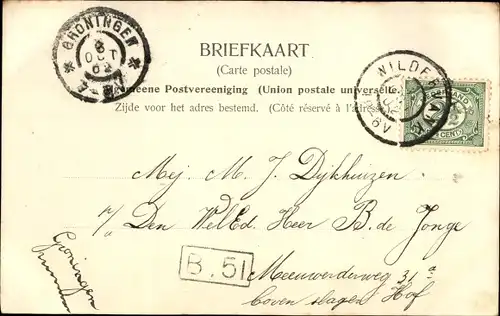 GRONINGEN
8
OCT
02
BRIEFKAART
(Carte postale)
Algemeene Postvereeniging (Union postale universelle)
Zijde voor het adres bestemd. (Côté réservé à l'adresse)
WILDERVANK
6V
CENT
Mej. M. J. Dijkhuizen
p/a Den WelEd. Heer B. de Jonge
B.51
Meeuwerderweg 31a
boven slagen Hof
Groningen